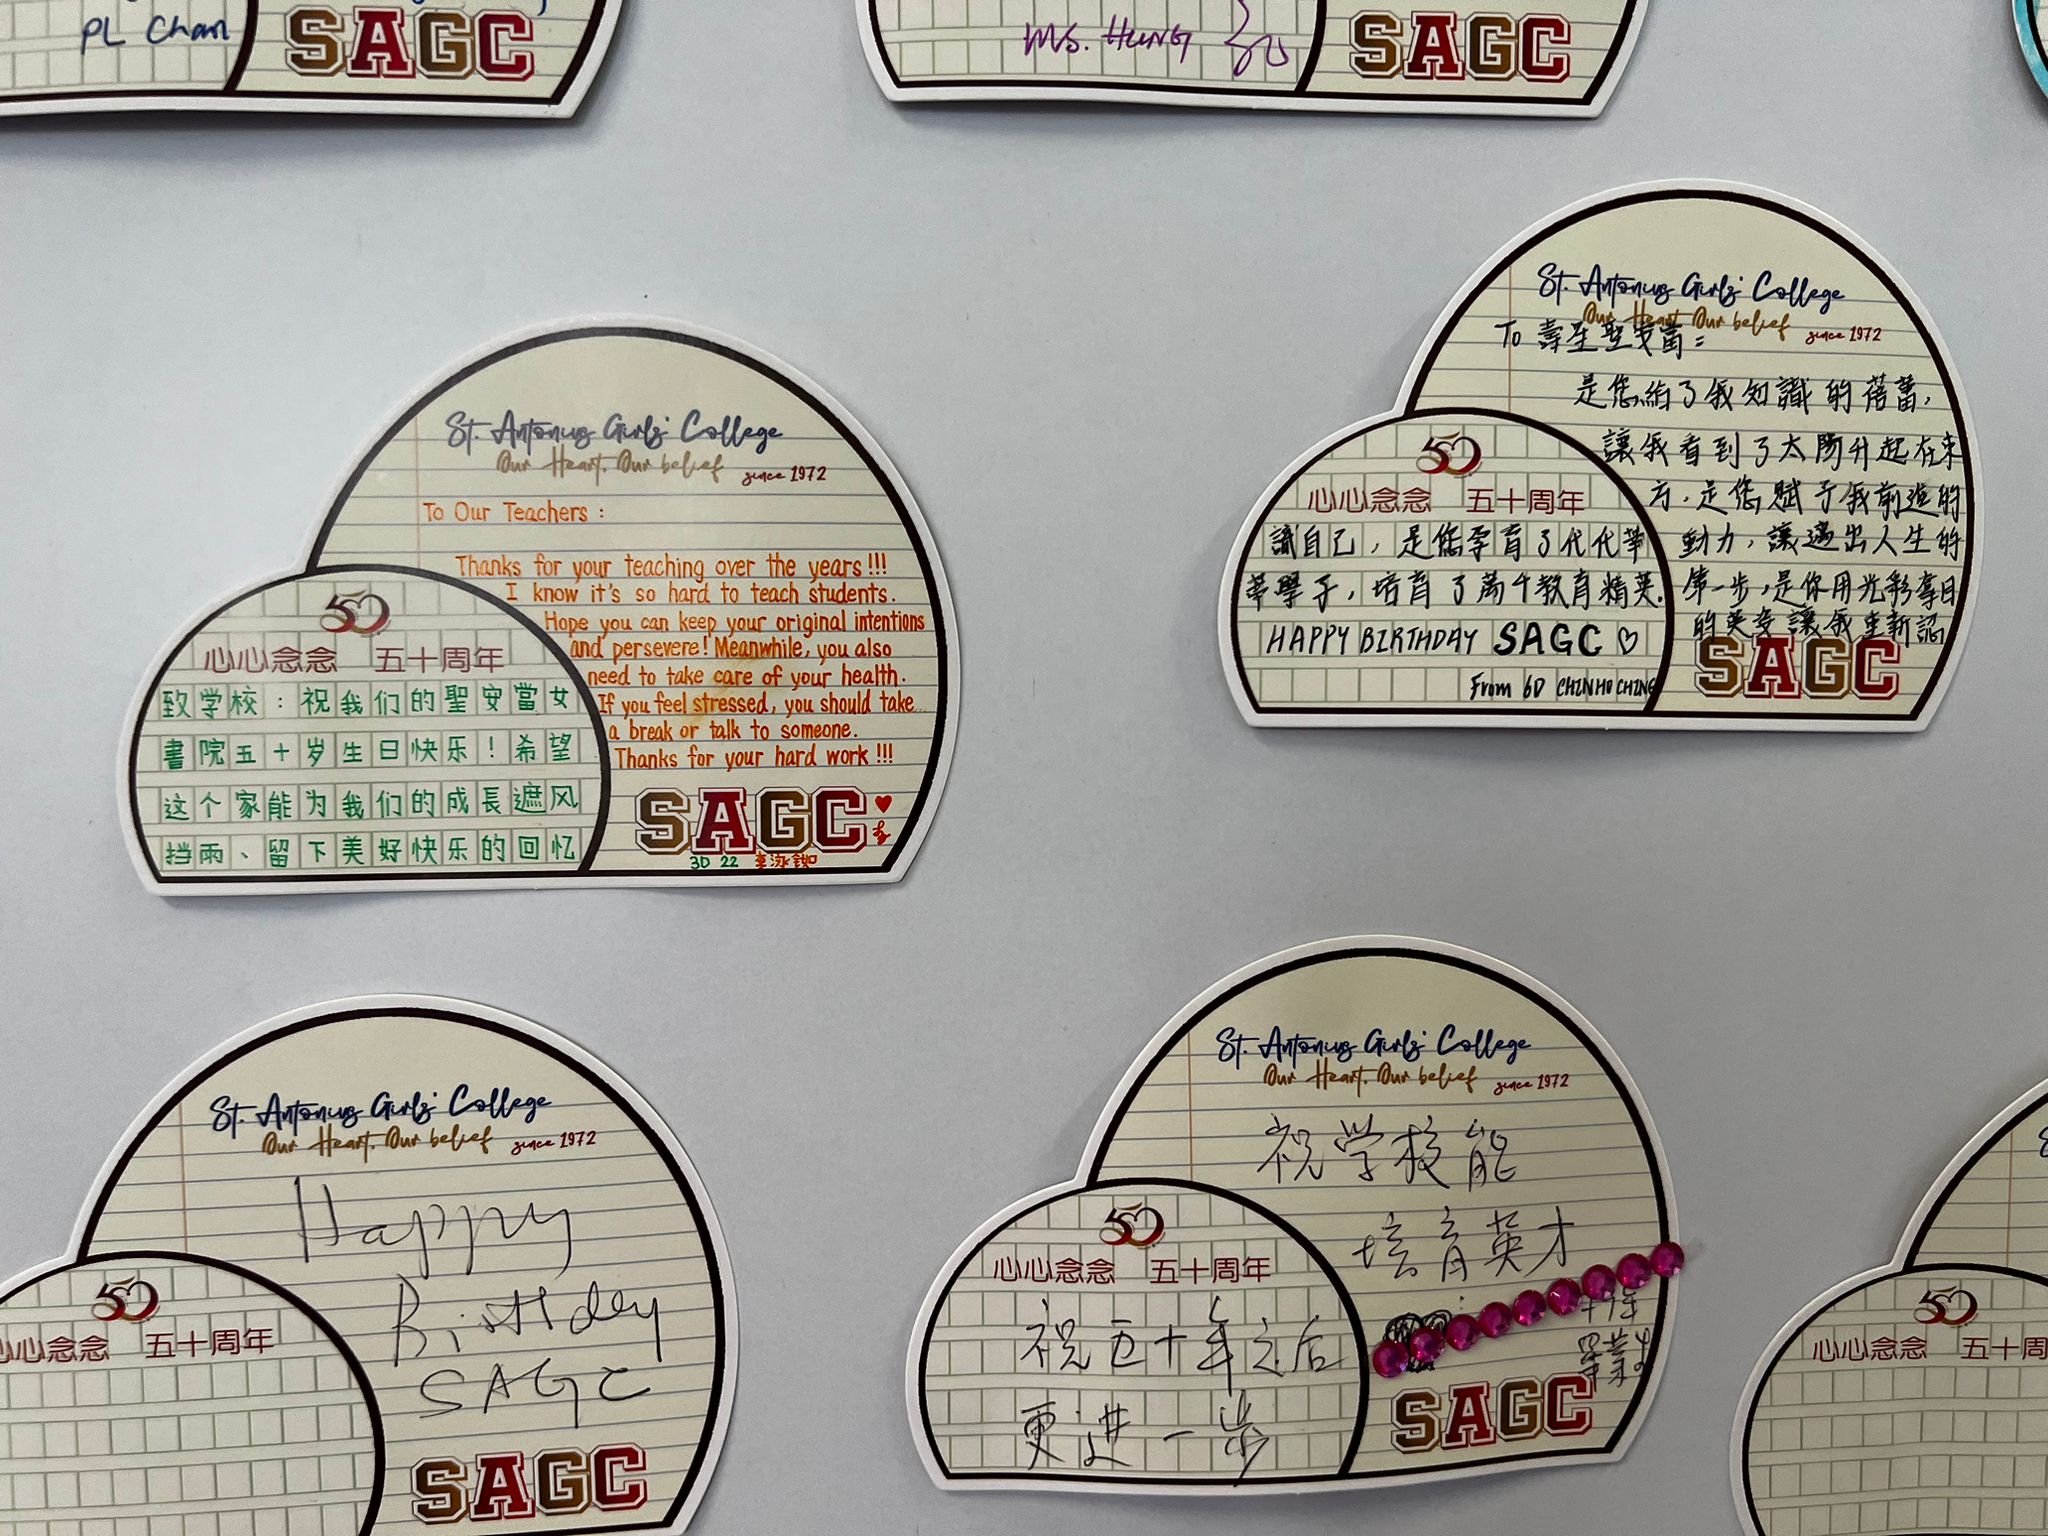 PL Chan
SAGC
Ms. HUNG
SAGC
St. Antonius Girls' College
Our Heart. Our belief since 1972
To Our Teachers :
Thanks for your teaching over the years!!!
I know it's so hard to teach students.
Hope you can keep your original intentions
and persevere! Meanwhile, you also
need to take care of your health.
If you feel stressed, you should take
a break or talk to someone.
Thanks for your hard work!!!
SAGC
3D 22 李泳
50
心心念念 五十周年
致学校：祝我们的聖安當女
書院五十岁生日快乐！希望
这个家能为我们的成長遮风
挡雨、留下美好快乐的回忆
St. Antonius Girls' College
Our Heart. Our belief since 1972
To 壽星聖安當：
是您給了我知識的蓓蕾，
讓我看到了太陽升起在東
方，是您賦予我前進的
動力，讓邁出人生的
第一步，是你用光彩奪目
的英姿讓我重新認
SAGC
50
心心念念 五十周年
識自己，是您孕育了代代莘
莘學子，培育了萬千教育精英.
HAPPY BIRTHDAY SAGC
From 6D CHIN HO CHING
St. Antonius Girls' College
Our Heart. Our belief since 1972
Happy
Birthday
SAGC
SAGC
50
心心念念 五十周年
St. Antonius Girls' College
Our Heart. Our belief since 1972
祝学校能
培育英才
SAGC
50
心心念念 五十周年
祝五十年之后
更进一步
50
心心念念 五十周